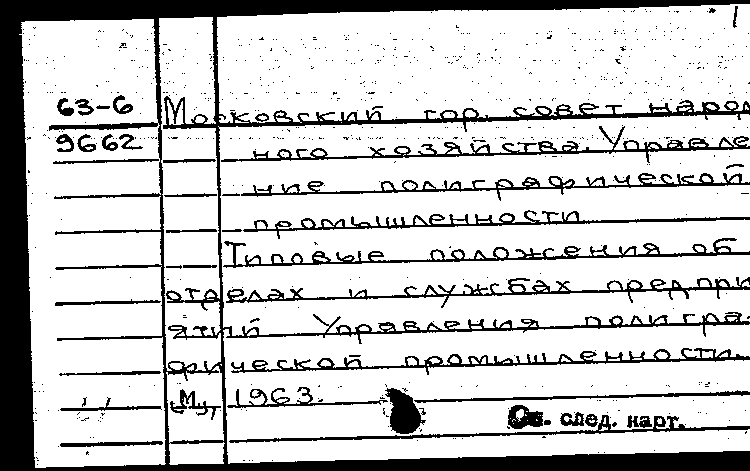 63-6 Московский гор. совет народ
9662 ного хозяйства. Управле
ние полиграфической
промышленности
Типовые положения об
отделах и службах предпри
ятий Управления полигра-
фической промышленности.
М., 1963.
См. след. карт.